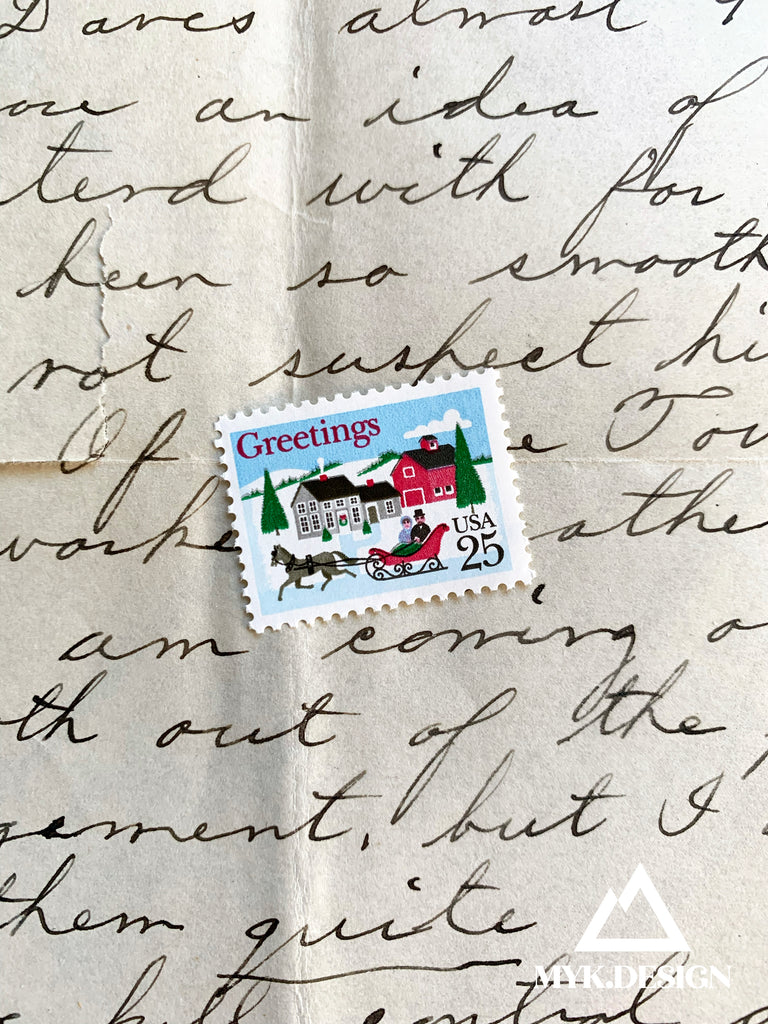 Daves almost
an idea of
tend with for
been so smooth
not suspect hi
Of
Greetings
e Tow
worke
athe
USA
25
am coming o
th out of the
gement, but I
them quite
MYK.DESIGN
kill control